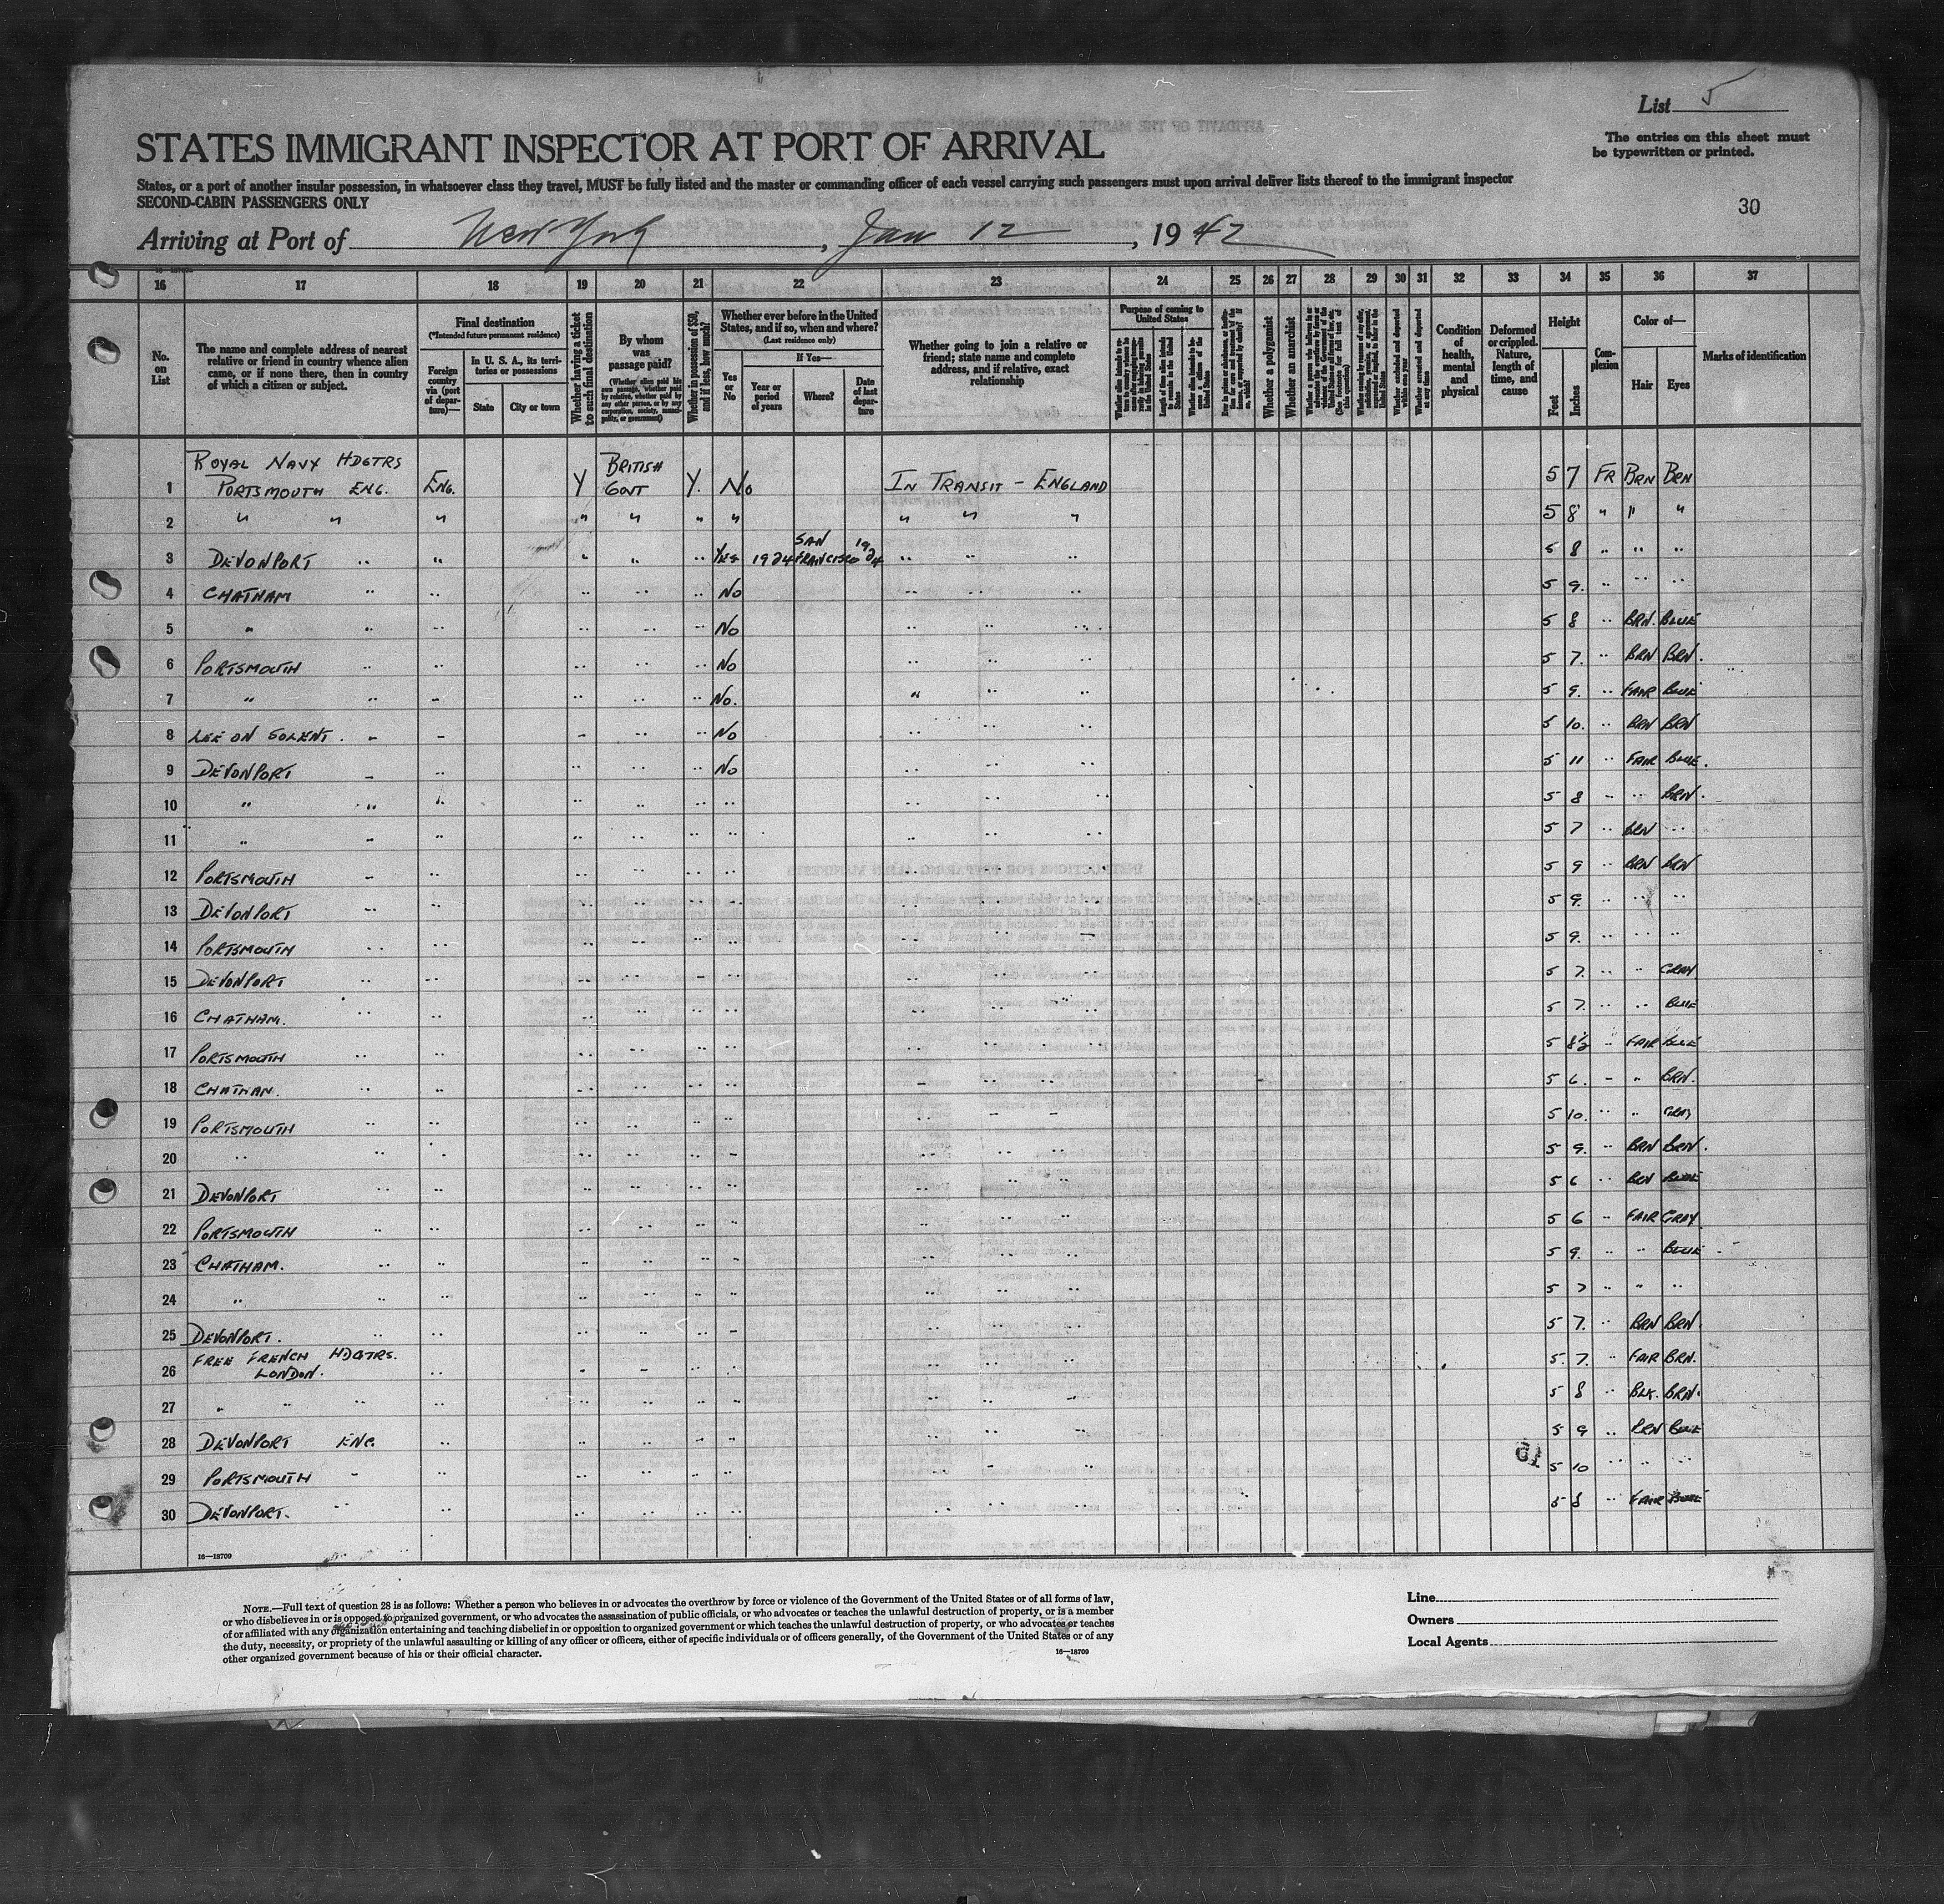 List 5
The entries on this sheet must
be typewritten or printed.
STATES IMMIGRANT INSPECTOR AT PORT OF ARRIVAL
States, or a port of another insular possession, in whatsoever class they travel, MUST be fully listed and the master or commanding officer of each vessel carrying such passengers must upon arrival deliver lists thereof to the immigrant inspector
SECOND-CABIN PASSENGERS ONLY
30
Arriving at Port of New York, Jan 12, 1942
16 17 18 19 20 21 22 23 24 25 26 27 28 29 30 31 32 33 34 35 36 37
No. on List
The name and complete address of nearest
relative or friend in country whence alien
came, or if none there, then in country
of which a citizen or subject.
Final destination
(*Intended future permanent residence)
Foreign country via (port of departure)—
In U. S. A., its territories or possessions
State
City or town
Whether having a ticket to such final destination
By whom was passage paid?
Whether in possession of $50, and if less, how much?
Whether ever before in the United
States, and if so, when and where?
(Last residence only)
Yes or No
If Yes—
Year or period of years
Where?
Date of last departure
Whether going to join a relative or
friend; state name and complete
address, and if relative, exact
relationship
Purpose of coming to United States
Whether a polygamist
Whether an anarchist
Condition of health, mental and physical
Deformed or crippled. Nature, length of time, and cause
Height
Feet
Inches
Complexion
Color of—
Hair
Eyes
Marks of identification
ROYAL NAVY HDQTRS
1 PORTSMOUTH ENG. ENG. Y BRITISH GOVT Y. NO IN TRANSIT - ENGLAND 5 7 FR BRN BRN
2 " " " " " " " " " " 5 8 " " "
3 DEVONPORT " " " " " YES 1924 SAN FRANCISCO 1924 " " " 5 8 " " "
4 CHATHAM " " " " " NO " " " 5 9. " " "
5 " " " " " " NO " " " 5 8 " BRN. BLUE
6 PORTSMOUTH " " " " " NO " " " 5 7. " BRN BRN.
7 " " " " " " NO. " " " 5 9. " FAIR BLUE
8 LEE ON SOLENT. " " " " " NO " " " 5 10. " BRN BRN
9 DEVONPORT " " " " " NO " " " 5 11 " FAIR BLUE.
10 " " " " " " " " " " 5 8 " " BRN.
11 " " " " " " " " " " 5 7 " BRN "
12 PORTSMOUTH " " " " " " " " " 5 9 " BRN BRN
13 DEVONPORT " " " " " " " " " 5 9. " " "
14 PORTSMOUTH " " " " " " " " " 5 9. " " "
15 DEVONPORT " " " " " " " " " 5 7. " " GRAY
16 CHATHAM. " " " " " " " " 5 7. " " BLUE
17 PORTSMOUTH " " " " " " " " " 5 8½ " FAIR BLUE
18 CHATHAM. " " " " " " " " " 5 6. " " BRN.
19 PORTSMOUTH " " " " " " " " " 5 10. " " GRAY
20 " " " " " " " " " " 5 9. " BRN BRN.
21 DEVONPORT " " " " " " " " " 5 6 " BRN BLUE
22 PORTSMOUTH " " " " " " " " " 5 6 " FAIR GRAY
23 CHATHAM. " " " " " " " " " 5 9. " " BLUE
24 " " " " " " " " " " 5 7 " " "
25 DEVONPORT. " " " " " " " " " 5 7. " BRN BRN.
FREE FRENCH HDQTRS.
26 LONDON. " " " " " " " " 5. 7. " FAIR BRN.
27 " " " " " " " " " " 5 8 " BLK. BRN.
28 DEVONPORT ENG. " " " " " " " " 5 9 " BRN BLUE
29 PORTSMOUTH " " " " " " " " " 5 10 " " "
30 DEVONPORT. " " " " " " " " " 5 8 " FAIR BLUE
16—18709
NOTE.—Full text of question 28 is as follows: Whether a person who believes in or advocates the overthrow by force or violence of the Government of the United States or of all forms of law,
or who disbelieves in or is opposed to organized government, or who advocates the assassination of public officials, or who advocates or teaches the unlawful destruction of property, or is a member
of or affiliated with any organization entertaining and teaching disbelief in or opposition to organized government or which teaches the unlawful destruction of property, or who advocates or teaches
the duty, necessity, or propriety of the unlawful assaulting or killing of any officer or officers, either of specific individuals or of officers generally, of the Government of the United States or of any
other organized government because of his or their official character.
16—18709
Line
Owners
Local Agents